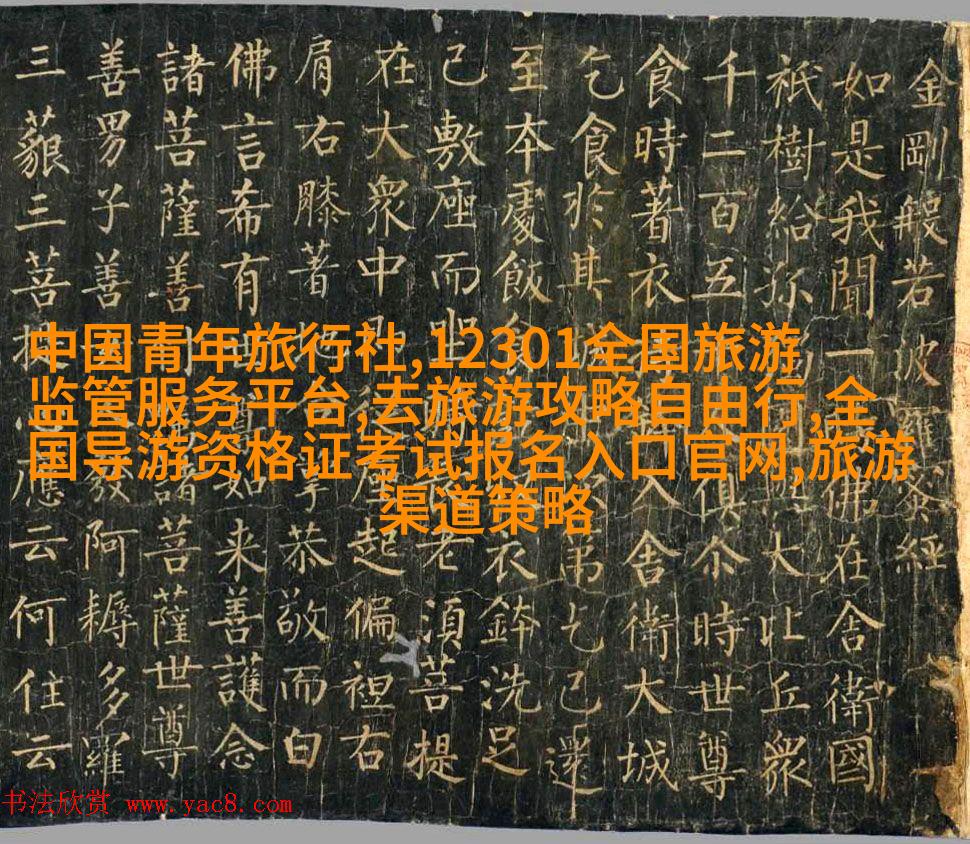 金剛般若波羅蜜經
如是我聞一佛在舍衛國
祇樹給孤大比丘眾
千二百五俱尒時世尊
食時著衣入舍衛大城
乞食於其城弟乞已還
至本處飯食衣鉢洗足
已敷座而坐老須菩提
在大眾中座起偏袒右
肩右膝著地掌恭敬而白
佛言希有世尊如来善護念
諸菩薩善付諸菩薩世尊
善男子善發阿耨多羅
三藐三菩提應云何住云
中国青年旅行社,12301全国旅游
监管服务平台,去旅游攻略自由行,全
国导游资格证考试报名入口官网,旅游
渠道策略
书法欣赏 www.yac8.com